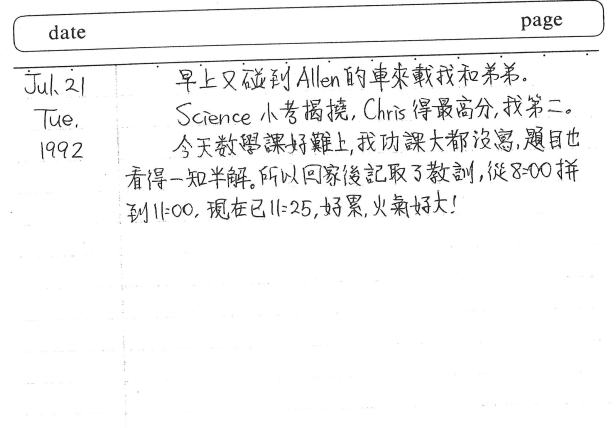 date page
Jul. 21 早上又碰到Allen的車來載我和弟弟.
Tue. Science 小考揭撓, Chris得最高分,我第二。
1992 今天数學課好難上,我功課大都沒寫,題目也
看得一知半解。所以回家後記取了教訓,從8:00拼
到11:00. 現在已11:25,好累,火氣好大!